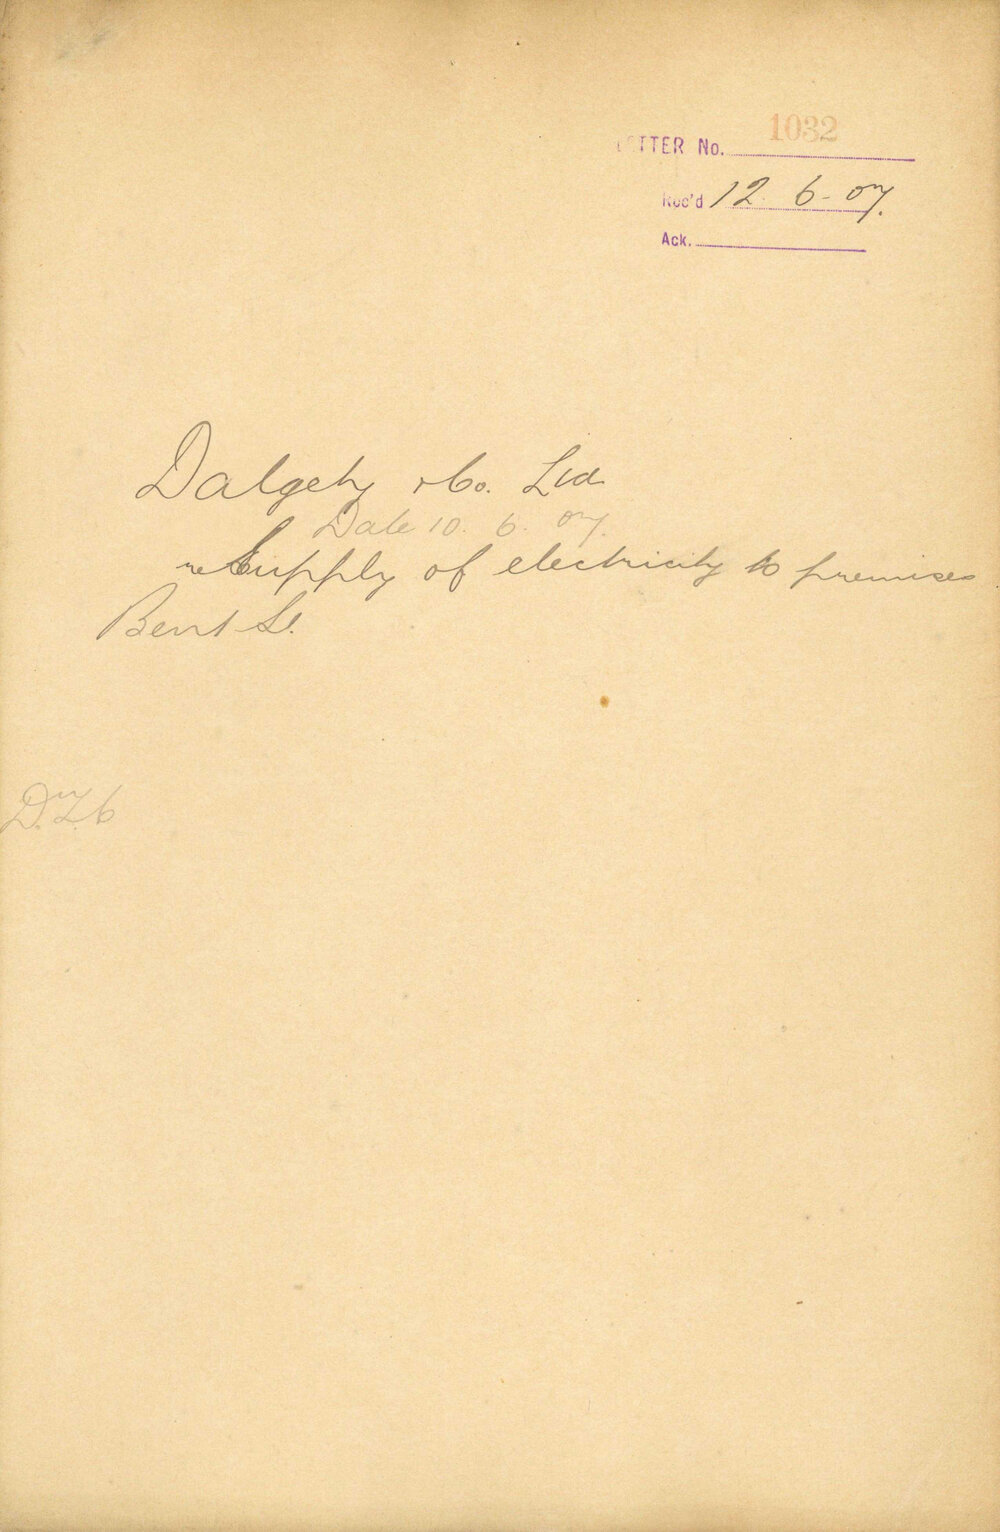 LETTER No. 1032
Rec'd 12. 6. 07.
Ack.
Dalgety & Co. Ltd
Date 10. 6. 07.
re Supply of electricity to premises
Bent St.